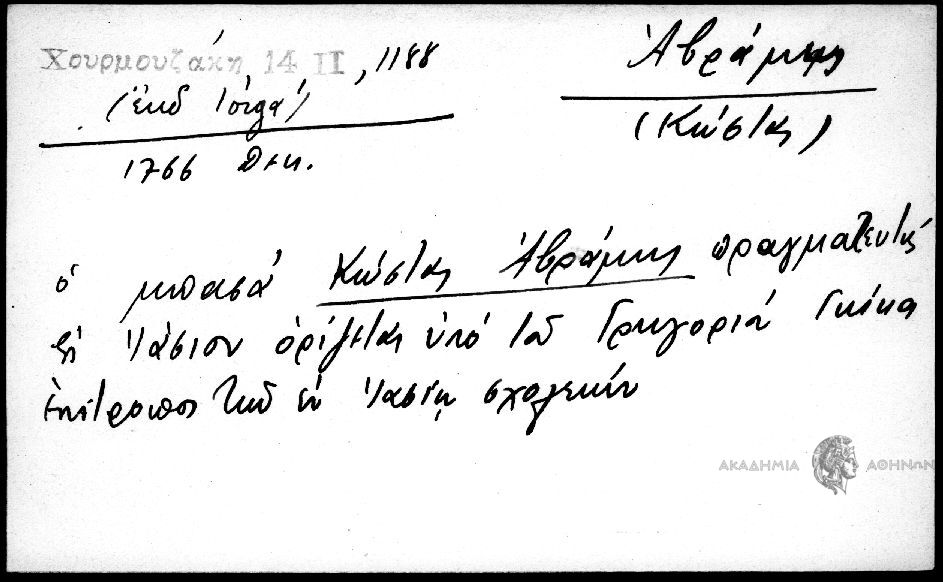 Χουρμουζάκη 14 II, 1188
(ἐκδ Ἰόργα)
1766 Δεκ.
Ἀβράμης
(Κώστας)
ὁ μπασὰ Κώστας Ἀβράμης πραγματευτὴς
εἰς Ἰάσιον ὁρίζεται ὑπὸ τοῦ Γρηγορίου Γκίκα
ἐπίτροπος τοῦ ἐν Ἰασίῳ σχολείου
ΑΚΑΔΗΜΙΑ ΑΘΗΝΩΝ